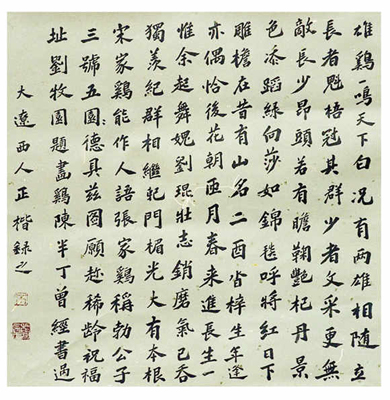 雄鷄鳴天下白况有两雄相随立
長者魁梧冠其群少者文采更無
敵長少昂頭若有瞻鞠艶杞丹景
色添蹈絲向莎如錦毯呼將紅日下
雕檐在昔有山名二酉皆梓生年逢
亦偶恰後花朝匝月春来進長生一
惟余起舞媿劉琨壯志銷磨氣已吞
獨羡紀群相繼門楣光大有本根
宋家鷄能作人語張家鷄稱勃公子
三號五德具兹图願趁稀齡祝福
址劉牧園題畫鷄陳半丁曾經書過
大遼西人正楷録之